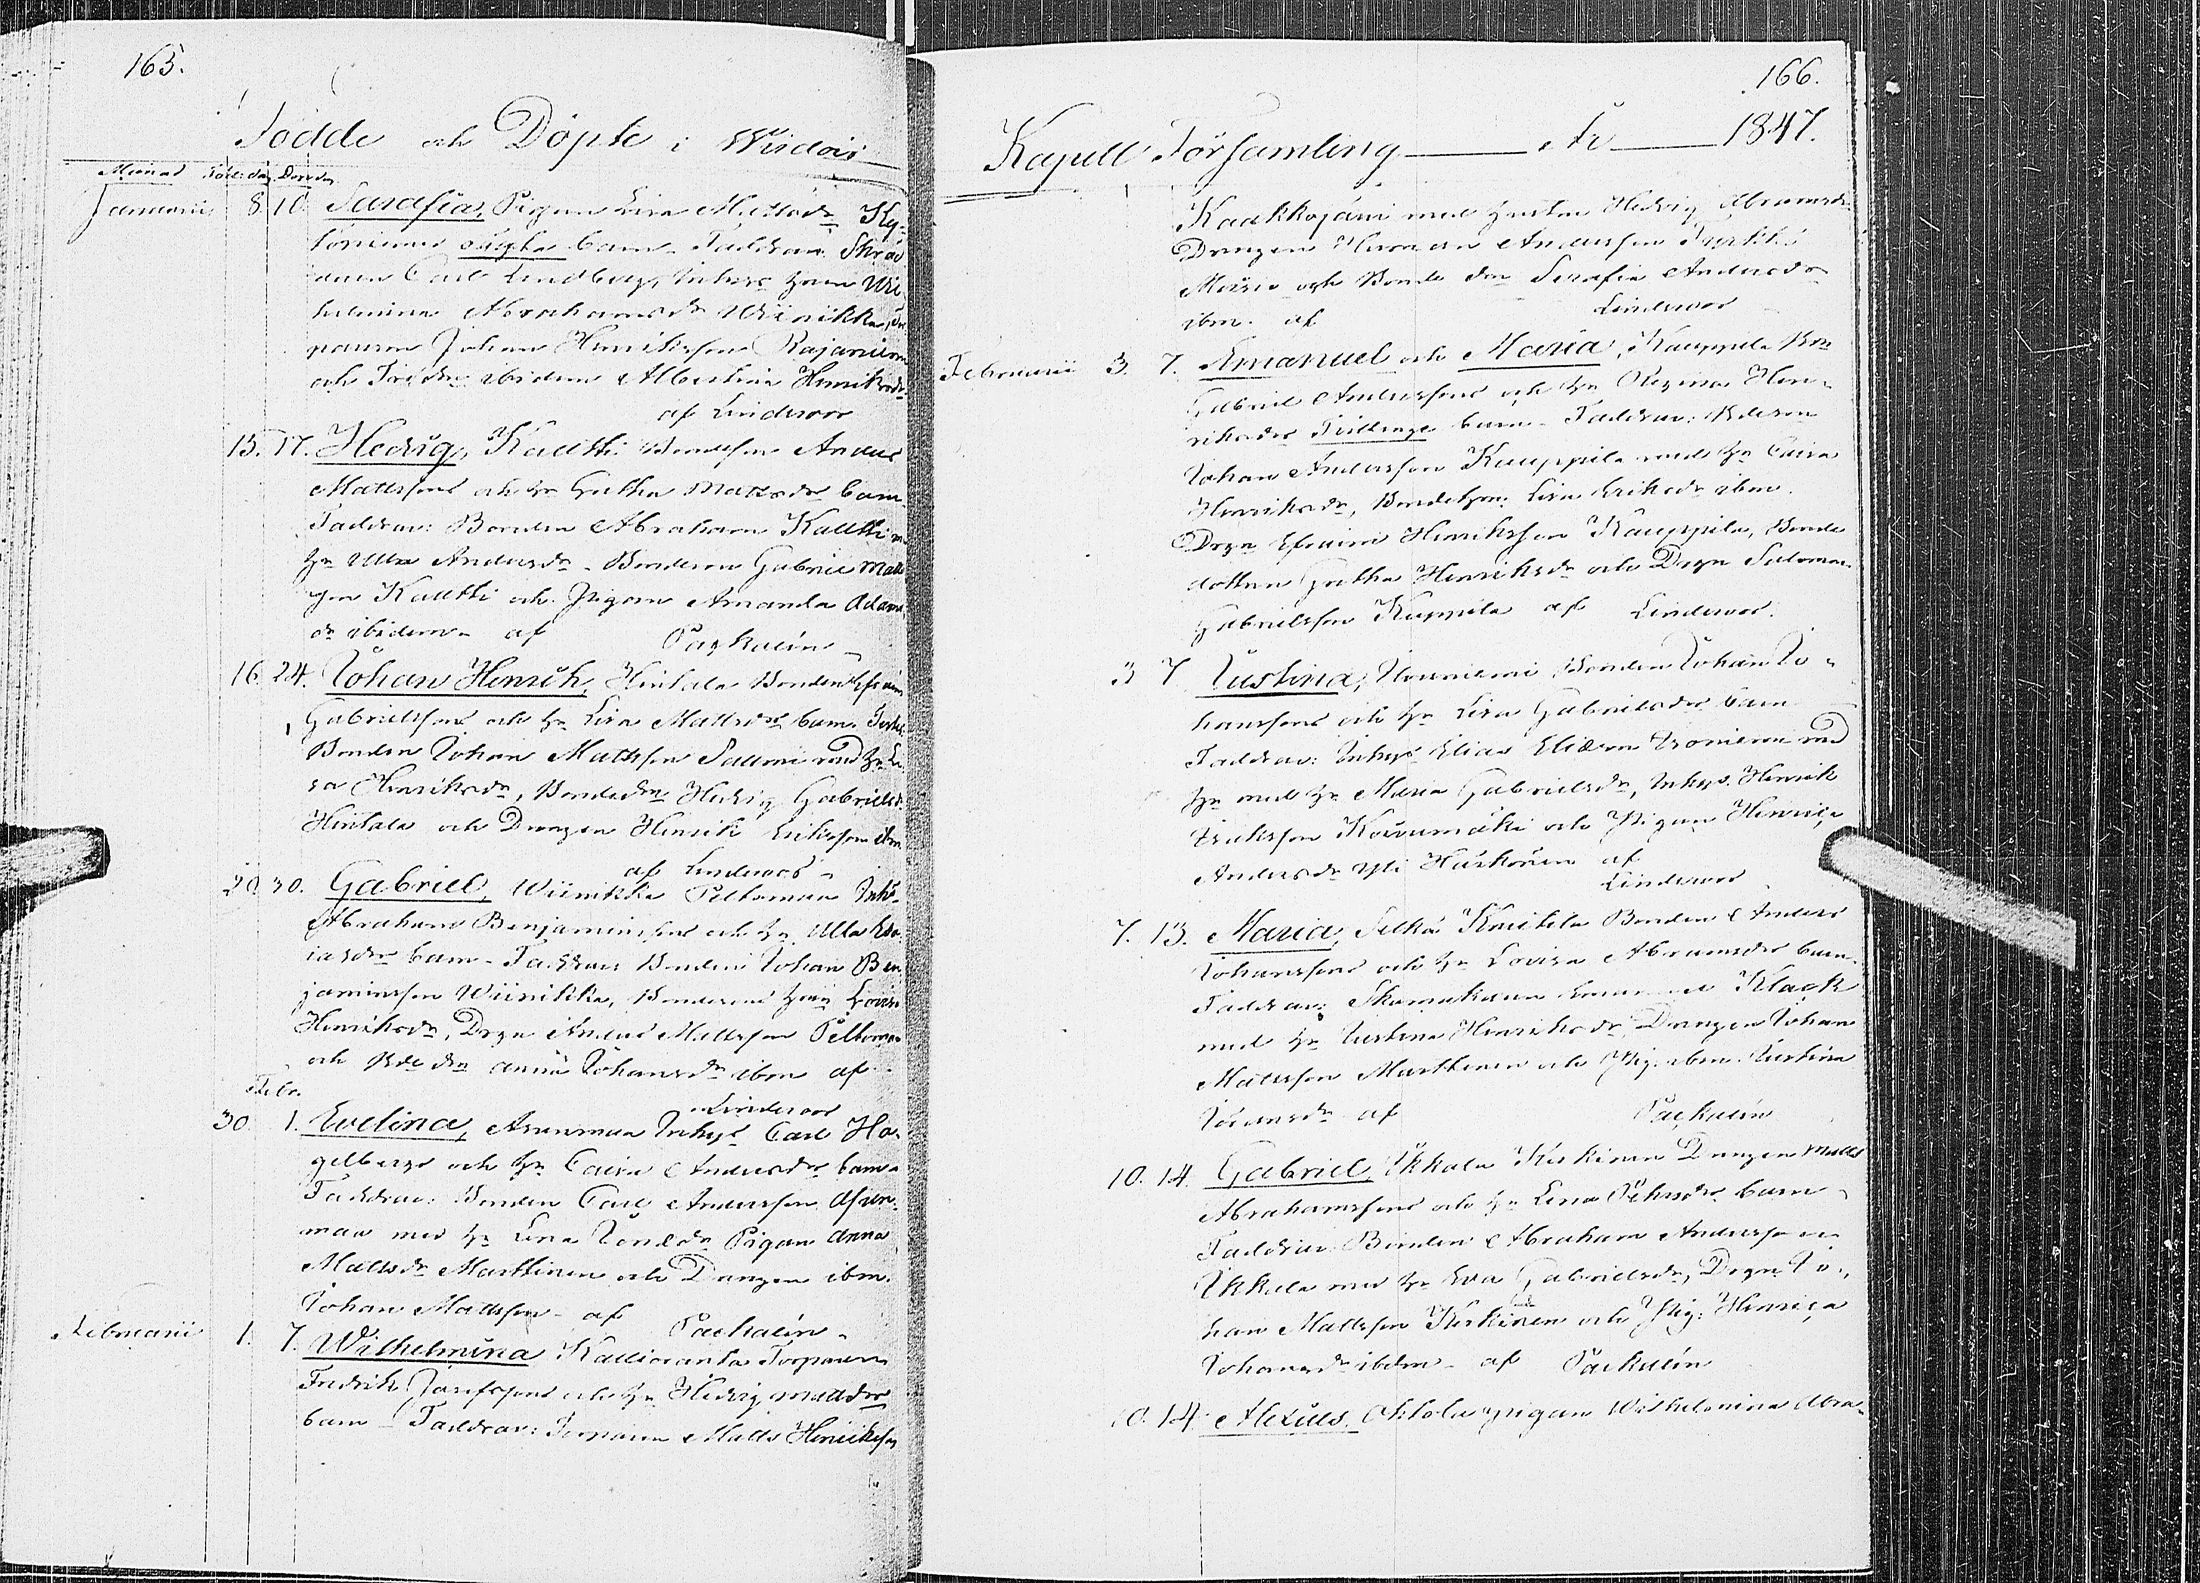 165.
Födde och Döpte i Wirdois
Månad Föd. dag Döpe dag
Januarii 8 10 Serafia, Pigan Lisa Mattsdr Ky-
löniemi oägta barn. Faddrar: Skräd
aren Carl Lindberg, Inhys: hru Wil
helmina Abrahamsdr Wiinikka, Tor
paren Johan Henriksson Rajaniemi
och ibidem Albertina Henriksdr
af Lindroos
13. 17. Hedvig, Kallti Bondeson Anders
Mattssons och h: Greta Mattsdr barn
Faddrar: Bonden Abraham Kallti m
h: Ulla Andersdr. Bonderne Gabriel Matts
son Kallti och Pigan Amanda Adams
dr ibidem af Packalén
16. 24. Johan Henrik, Hintala Bonden Efraim
Gabrielssons och h: Lisa Mattsdr barn.
Bonden Johan Mattsson Salmi med h: Li
sa Henriksdr, Bondedr: Hedvig Gabrielsdr
Hintala och Drängen Henrik Eriksson ibm
af Lindroos
20. 30. Gabriel, Wiinikka Peltomaa Inh:
Abraham Benjaminssons och h: Ulla Esa
iasdr barn. Faddrar Bonden Johan Ben
jaminsson Wiinikka, Bondens hru Lovisa
Henriksdr, Drgn Anders Mattsson Peltomaa
och Bde dr Anna Johansdr ibm af
Lindroos
Febr.
30 1. Evelina, Asunmaa Inhys: Carl Ha-
gelbergs och h: Caisa Andersdr barn
Faddrar: Bonden Carl Andersson Asun-
maa med h: Lena Pigan Anna
Mattsdr Marttinen och Drängen ibm.
Johan Mattsson af Packalén
Februarii 1. 7. Wilhelmina Kallioranta Torparen
Fredrik Josefssons och h: Hedvig Mattsdr
barn Faddrar: Torparen Matts Henriksson
166.
Kapell Församling År 1847.
Kaakkojärvi med hustru Hedvig Abramsdr
Drängen Herman Andersson
och Bonde dr Serafia Andersdr
ibm. af Lindroos
Februarii 3. 7. Emanuel och Maria, Kauppila Bon
Gabriel Anderssons och h: Regina Hen-
riksdrs Tvillinge barn. Faddrar: Bonden
Johan Andersson Kauppila med h: Caisa
Henriksdr, Bondehru: Lisa Eriksdr ibm.
Drgn Efraim Henriksson Kauppila, Bonde
dottren Greta Henriksdr och Drgn Salomon
Gabrielsson Kauppila af Lindroos.
3 7 Justina, Bonden Johan Jo-
hanssons och h: Lisa Gabrielsdr barn
Faddrar: Inhys: Elias Eliæson med
h: med h: Maria Gabrielsdr, Inhys. Henrik
Eriksson Koivumäki och Pigan Henrica
Andersdr Yli Haskonen af
Lindroos
7. 13. Maria, Knuttila Bonden Anders
Johanssons och h: Lovisa Abramsdr barn.
Faddrar: Skomakaren Klack
med h: Justina Henriksdr Drängen Johan
Mattsson Marttinen och Pig. ibm. Justina
af Packalén
10. 14. Gabriel, Ikkala Kirkinen Drängen Matts
Abrahamssons och h: Lena Pehrsdr barn
Faddrar Bonden Abraham Andersson
Ikkala med h: Eva Gabrielsdr, Drgn Jo-
han Mattsson Kirkinen och Pig: Henrica
Johansdr ibdm af Packalén
10. 14. Alexius, Ohtola pigan Wilhelmina Abra-